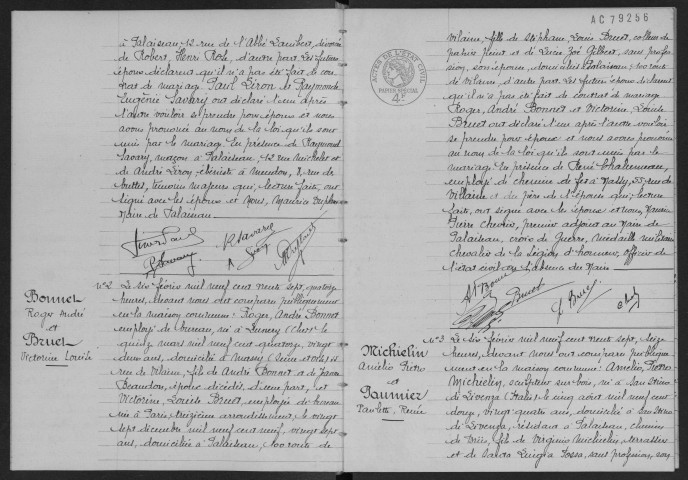 à Palaiseau 12 rue de l'Abbé Lambert, divorcée
de Robert, Henri d'autre part. Les futurs
époux déclarent qu'il n'a pas été fait de con-
trat de mariage Paul Liron et Raymonde
Eugénie Savary ont déclaré l'un après
l'autre vouloir se prendre pour époux et nous
avons prononcé au nom de la loi qu'ils sont
unis par le mariage. En présence de Raymond
Savary, maçon à Palaiseau, 12 rue Michelet et
de André Leroy, ébéniste à Meudon, rue de
témoins majeurs qui, lecture faite, ont
signé avec les époux et Nous, Maurice
Maire de Palaiseau
R Savary
N° 2
Bonnet
Roger André
et
Bruet
Victorine Louise
Le six février mil neuf cent trente sept, quatorze
heures, devant nous ont comparu publiquement
en la maison commune : Roger, André Bonnet
employé de bureau, né à Lunery (Cher) le
quinze mars mil neuf cent quatorze, vingt
deux ans, domicilié à Massy (Seine et Oise)
rue de Vilaine, fils de André Bonnet et de Jeanne
Beaudon, époux décédés, d'une part, et
Victorine, Louise Bruet, employée de bureau
née à Paris treizième arrondissement, le vingt
sept décembre mil neuf cent neuf, vingt sept
ans, domiciliée à Palaiseau, 100 route de
AC 79256
ACTES DE L'ETAT CIVIL
PAPIER SPECIAL
4F
Vilaine, fille de Stéphane, Louis Bruet,
et de Lucie Zoé Gilbert, sans profes-
sion, son épouse, domiciliés à Palaiseau 100 route
de Vilaine d'autre part. Les futurs époux déclarent
qu'il n'a pas été fait de contrat de mariage
Roger, André Bonnet et Victorine, Louise
Bruet ont déclaré l'un après l'autre vouloir
se prendre pour époux et nous avons prononcé
au nom de la loi qu'ils sont unis par le
mariage. En présence de René
employé de chemin de fer à Massy, 55 rue de
Vilaine et du père de l'épouse qui, lecture
faite, ont signé avec les époux et nous,
Pierre premier adjoint au Maire de
Palaiseau, croix de Guerre, médaille militaire
chevalier de la Légion d'honneur, officier de
l'état civil par délégation du Maire
Bruet
N° 3
Michielin
Amelio Pietro
et
Paumier
Paulette, Renée
Le six février mil neuf cent trente sept, seize
heures, devant nous ont comparu publique-
ment en la maison commune : Amelio, Pietro
Michielin, sculpteur sur bois, né à San Stino
di Livenza (Italie) le cinq août mil neuf cent
douze, vingt quatre ans, domicilié à San Stino
di Livenza, résidant à Palaiseau, chemin
de fils de Virginio Michielin, terrassier
et de Luigia Fossa, sans profession, son